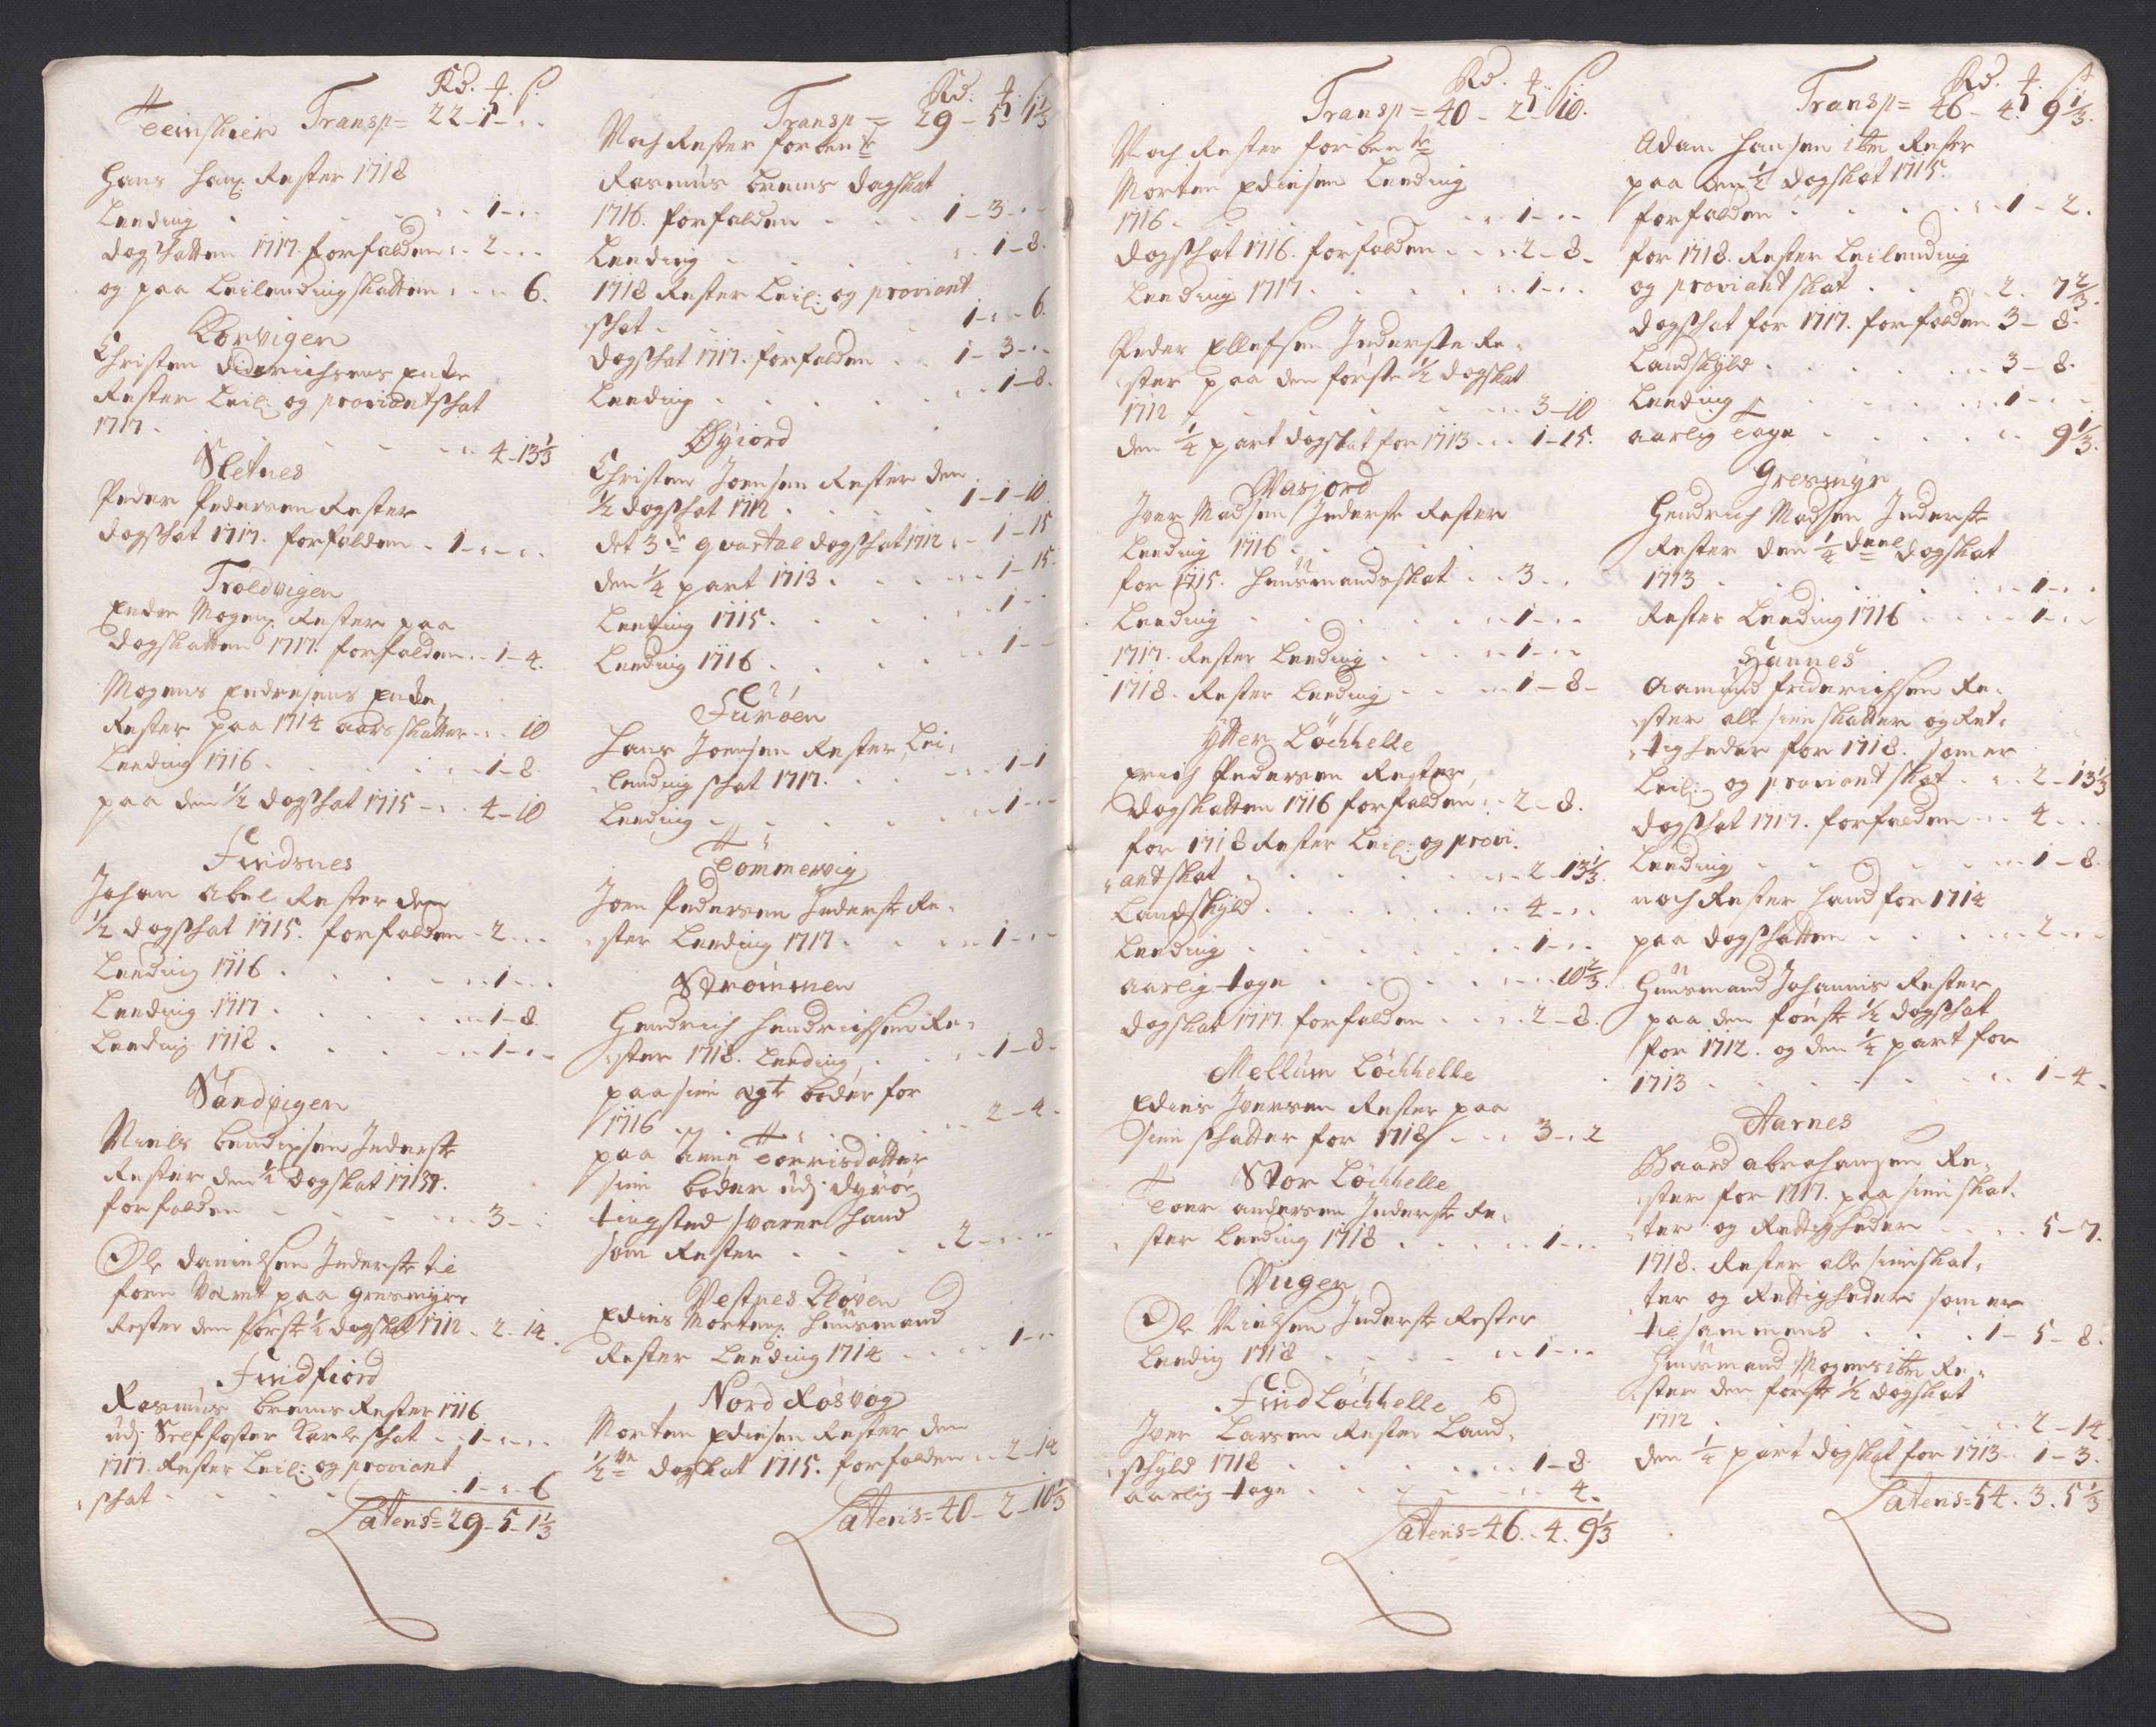 Rd. ꝉ. ß.
Teinskier Transp= 22-1-..
Hans Hanß: Rester 1718
Leeding . . . 1-..
dagskatten 1717. forfalden .. 2-..
og paa Leilendingskatten .. .. 6.
Korvigen
Christen Diderichsens Encke
Rester Leil: og proviantskat
1717. . . . 4-13⅓
Sletnes
Peder Pedersen Rester
dagskat 1717. forfalden . 1-..-..
Troldvigen
Endre Mogenß: Rester paa
dagskatten 1717. forfalden .. 1-4.
Mogens Endresens Encke,
Rester paa 1714 aars skatter .. .. 10
Leeding 1716 . . . 1-8.
paa den ½ dagskat 1715 - .. 4-10
Findsnes
Johan Abel Rester den
½ dagskat 1715. forfalden - 2-..
Leeding 1716 . . . 1-..
Leeding 1717 . . . 1-8.
Leeding 1718 . . . 1-..
Sandvigen
Niels Bendixsen Inderst
Rester den ½ dagskat 1713.
forfalden . . . 3-..
Ole Danielsen Inderst til
forn Været paa Gresmyr
Rester den første ½ dagskat 1712 . 2. 14.
Findfiord
Rasmus Brems Rester 1716
udj Selffoster Karleskat .. 1-..-..
1717. Rester Leil: og proviant
skat . . . 1-..-6
Lateris= 29-5-1⅓

Rd: ꝉ. ß
Transp= 29-5-1⅓
Noch Rester forbente
Rasmus Brems dagskat
1716. forfalden . . . 1-3-..
Leeding . . . 1-8.
1718 Rester Leil: og proviant
skat . . . 1-..-6.
dagskat 1717. forfalden . . 1-3-..
Leeding . . . 1-8.
Øyiord
Christen Joensen Rester den
½ dagskat 1712 . . . 1-1-10.
det 3de qvartal dagskat 1712 .- 1-15
den ¼ part 1713 . . . 1-15.
Leeding 1715. . . . 1-..
Leeding 1716 . . . 1-..
Furøen
Hans Joensen Rester Lei,
lending skat 1717. . . . 1-1
Leeding . . . 1-..
Tömmervig
Joen Pedersen Inderst Re,
ster Leeding 1717 . . . 1-..
Strømmen
Hendrich Hendrichsen Re,
ster 1718. Leeding . . . 1-8-
paa sine agt bøder for
1716 . . . 2-4.
paa Anne Torrisdatter
sine bøder udj Dyrøe
tingsted svarer hand
som Rester . . . 2-..-..
Vestnes Kløven
Edies Mortenß: Huusmand
Rester Leeding 1714 . . . 1-..
Nord Rosvog
Morten Ediesen Rester den
½te dagskat 1715. forfalden .. 2-14
Lateris= 40-2-10⅓

Rd. ꝉ. ß.
Transp= 40-2-10.
Noch Rester forbente
Morten Ediesen Leeding
1716 . . . 1-..
dagskat 1716. forfalden . . . 2-8-
Leeding 1717 . . . 1-..
Peder Ellefsen Inderste Re,
ster paa den første ½ dagskat
1712 . . . 3-10
den ¼ part dagskat for 1713 . . 1-15.
Vasjord
Iver Madsen Inderst Rester
Leeding 1716 . .
for 1715. Huusmandsskat . . 3-..
Leeding . . . 1-..
1717. Rester Leeding . . . 1-..
1718. Rester Leeding . . . 1-8-
Ytter Löchhelle
Erich Pedersen Rester,
dagskatten 1716 forfalden .. 2-8.
for 1718 Rester Leil: og provi,
antskat . . . 2-13⅓.
Landskyld . . . 4-..
Leeding . . . 1-..
aarlig tage . . . 10⅔.
dagskat 1717. forfalden . . . 2-8.
Mellum Löchhelle
Edies Iversen Rester paa
sine skatter for 1718 - .. 3-..2
Stor Löchhelle
Toer Andersen Inderst Re,
ster Leeding 1718 . . . 1-..
Vugen
Ole Nielsen Inderst Rester
Leedig 1718 . . . 1-..
Find Löchhelle
Iver Larsen Rester Land,
skyld 1718 . . . 1-8
aarlig tage . . . 4.
Lateris= 46.-4. 9⅓

Rd. ꝉ. ß
Transp= 46-4. 9⅓.
Adam Hansen ibm Rester
paa den ½ dagskat 1715.
forfalden . . . 1-2.
for 1718. Rester Leilending
og proviantskat . . . 2. 7⅔.
dagskat for 1717. forfalden 3-8.
Landskyld . . . 3-8.
Leeding . . . 1-..
aarlig tage . . . 9⅓.
Gresmyr
Hendrich Madsen Inderst
Rester den ¼ deel dagskat
1713 . . . 1-..
Rester Leeding 1716 . . . 1-..
Hannes
Aamund Friderichsen Re,
ster alle sine skatter og Ret,
tigheder for 1718. som er
Leil: og proviantskat . . . 2-13⅓
dagskat 1717. forfalden . . 4-..
Leeding . . . 1-8.
noch Rester Hand for 1714
paa dagskatten . . . 2-..
Huusmand Johannis Rester
paa den første ½ dagskat
for 1712. og den ¼ part for
1713 . . . 1-4-
Aarnes
Baard Abrahamsen Re,
ster for 1717. paa sine skat,
ter og Rettigheder . . . 5-7.
1718. Rester alle sine skat,
ter og Rettigheder som er
tilsammens . . . 1-5-8.
Huusmand Mogens ibm Re,
ster den første ½ dagskat
1712 . . . 2-14
den ¼ part dagskat for 1713 .. 1-3.
Lateris= 54. 3. 5⅓